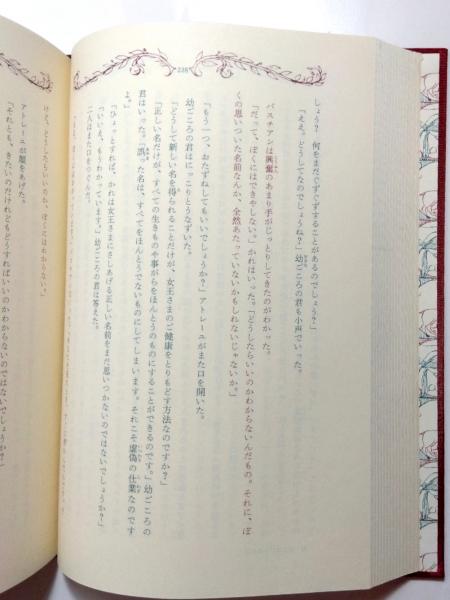 238
しょう? 何をまだぐずぐずすることがあるのでしょう?」
「ええ。どうしてなのでしょうね?」幼ごころの君も小声でいった。
バスチアンは興奮のあまり手がじっとりしてきたのがわかった。
「だって、ぼくにはできやしない。」かれはいった。「どうしたらいいのかわからないんだもの。それに、ぼ
くの思いついた名前なんか、全然あたっていないかもしれないじゃないか。」
「もう一つ、おたずねしてもいいでしょうか?」アトレーユがまた口を開いた。
幼ごころの君はにっこりとうなずいた。
「どうして新しい名を得られることだけが、女王さまのご健康をとりもどす方法なのですか?」
「正しい名だけが、すべての生きものや事がらをほんとうのものにすることができるのです。」幼ごころの
君はいった。「誤った名は、すべてをほんとうでないものにしてしまいます。それこそ虚偽の仕業なのです
よ。」
「ひょっとすれば、かれは女王さまにさしあげる正しい名前をまだ思いつかないのではないでしょうか?」
「いいえ、もうわかっています。」幼ごころの君は答えた。
二人はまた口をつぐんだ。
けど、どうしたらいいのか、ぼくにはわからない。」
アトレーユが顔をあげた。
「それとも、きたいのだけれどもどうすればいいのかわからないのではないでしょうか?」